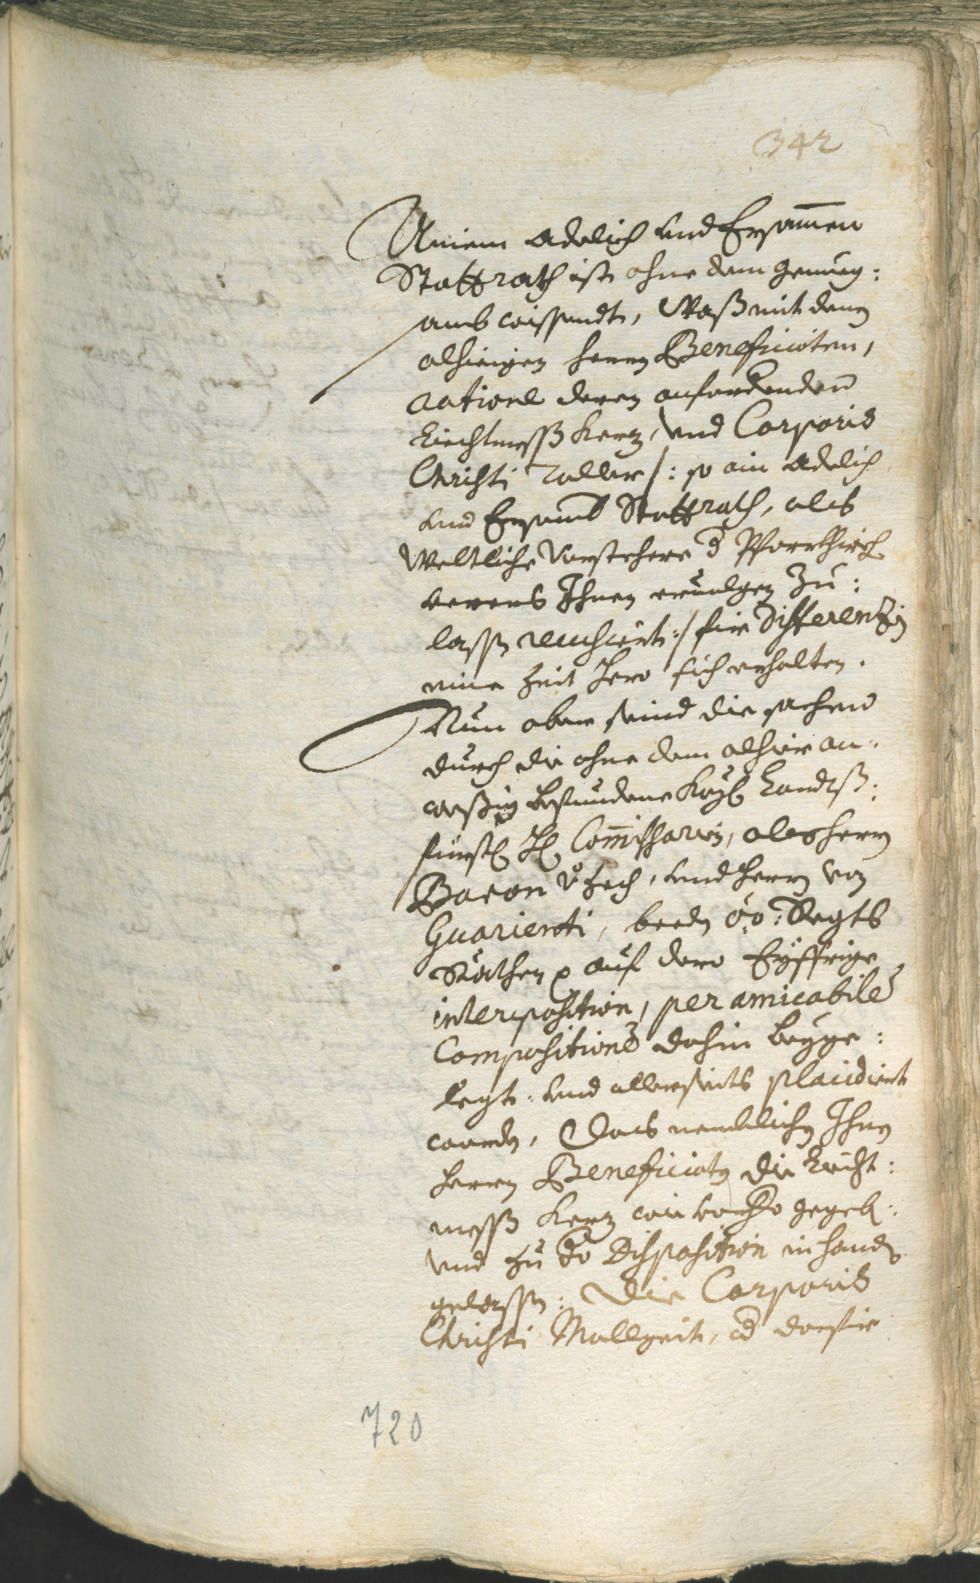 342
Ainem Adelich und Ersammen
Stattrath ist ohne dem genueg:
samb wissendt, Waß mit denen
alhiesigen herrn Beneficiaten,
ratione deren anfordernden
Liechtmeß Kerz, und Corporis
Christi Taller /: so ain Adelich
und Ersamb Stattrath, als
Weltliche Vorstehere d Pfarrkhirch
Ihnen ervolgen zu:
lassen recusiert :/ für Differentien
eine Zeit hero sich erhalten.
Nun aber seind die sachen
durch die ohne dem alhier an:
weßig Kays Landts:
fürstl H Commissarien, als herrn
Baron v Zech, und herrn von
Guarienti, beeden OÖ: Regts
Räthen p auf dero Eyffrige
interposition, per amicabile
Compositione dahin beyge:
legt und allerseits placidiert
worden, Das nemblichen Ihnen
herrn Beneficiaten die Liecht:
mess Kerz wie vor gegeben:
und zu Disposition in handen
gelassen: Die Corporis
Christi Mallzeit, od dafür
720